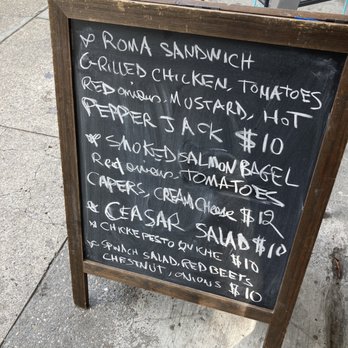 x ROMA SANDWICH
GRILLED CHICKEN, TOMATOES
RED onions, MUSTARD, HOT
PEPPER JACK $10
* SMOKED SALMON BAGEL
Red onions, TOMATOES
CAPERS, CREAM Cheese $12
* CEASAR SALAD $10
* CHICKE PESTO QUICHE $10
* SPINACH SALAD, RED BEETS
CHESTNUT, ONIONS $10